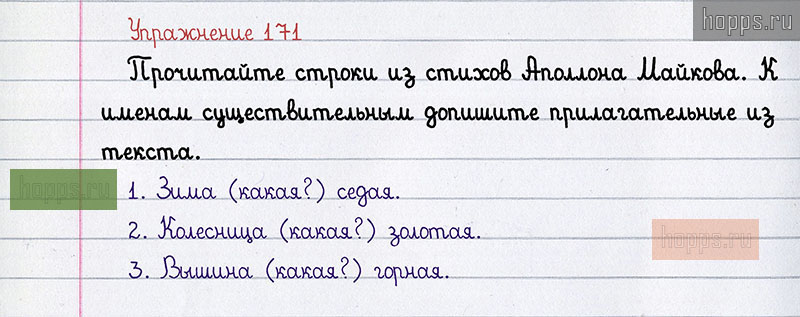 hopps.ru
Упражнение 171
Прочитайте строки из стихов Аполлона Майкова. К
именам существительным допишите прилагательные из
текста.
hopps.ru
1. Зима (какая?) седая.
2. Колесница (какая?) золотая.
hopps.ru
3. Вышина (какая?) горная.